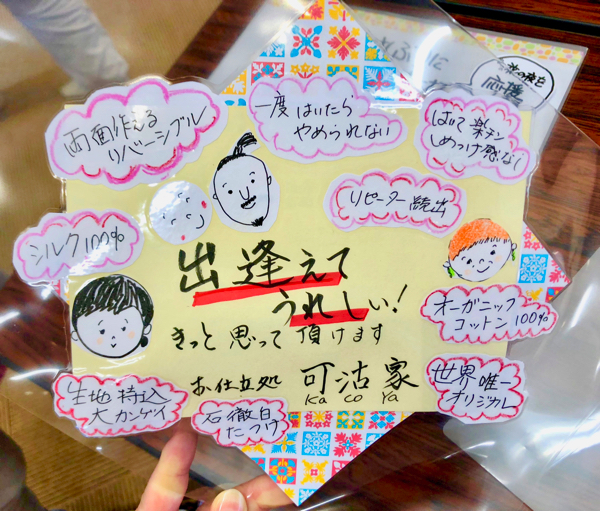 両面使える
リバーシブル
一度はいたら
やめられない
はいて楽チン
しめつけ感なし
リピーター続出
シルク100%
出逢えて
うれしい!
きっと思って頂けます
オーガニック
コットン100%
お仕立処 可沽家
Ka co Ya
生地持込
大カンゲイ
石徹白
たつけ
世界唯一
オリジナル
応援